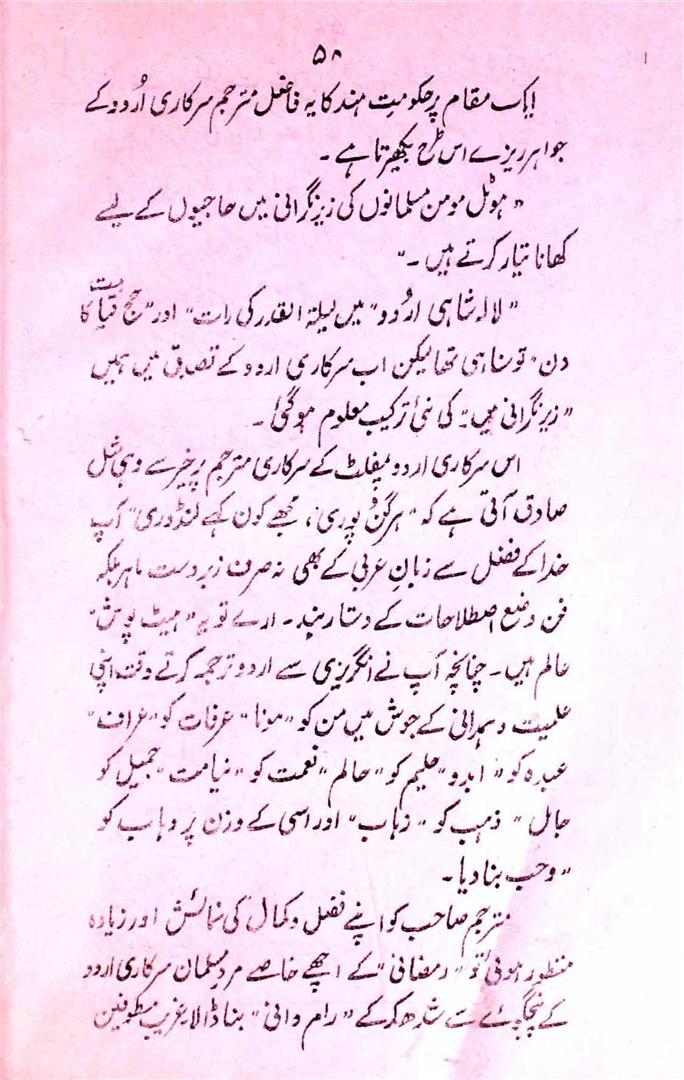 ۵۸
ایک مقام پر حکومتِ ہند کا یہ فاضل مترجم سرکاری اُردو کے
جواہر ریزے اس طرح بکھیرتا ہے۔
"ہوٹل مومن مسلمانوں کی زیر نگرانی میں حاجیوں کے لیے
کھانا تیار کرتے ہیں۔"
"لالہ شاہی اردُو" میں لیلۃ القدر کی رات" اور "حج قیامت کا
دن" تو سنا ہی تھا لیکن اب سرکاری اردو کے تصدق میں ہمیں
"زیر نگرانی میں" کی نئی ترکیب معلوم ہوگئی۔
اس سرکاری اردو پمفلٹ کے سرکاری مترجم پر خیر سے وہی مثل
صادق آتی ہے کہ "ہر گن پوری، مجھے کون کہے لنڈوری" آپ
خدا کے فضل سے زبانِ عربی کے بھی نہ صرف زبردست ماہر بلکہ
فن وضع اصطلاحات کے دستار بند۔ ارے توبہ "ہیٹ پوش"
عالم ہیں۔ چنانچہ آپ نے انگریزی سے اردو ترجمہ کرتے وقت اپنی
علمیت و ہمدانی کے جوش میں من کو "منا" عرفات کو "عراف"
عبدہ کو "ابدو" حلیم کو "حالم" نعمت کو "نیامت" جمیل کو
جال" ذہب کو "زہاب" اور اسی کے وزن پر وہاب کو
"وحب بنا دیا۔
مترجم صاحب کو اپنے فضل و کمال کی نمائش اور زیادہ
منظور ہوئی تو "رمضانی" کے اچھے خاصے مرد مسلمان سرکاری اردو
کے سے شدھ کر کے "رام دانی" بنا ڈالا۔ غریب مطوفین